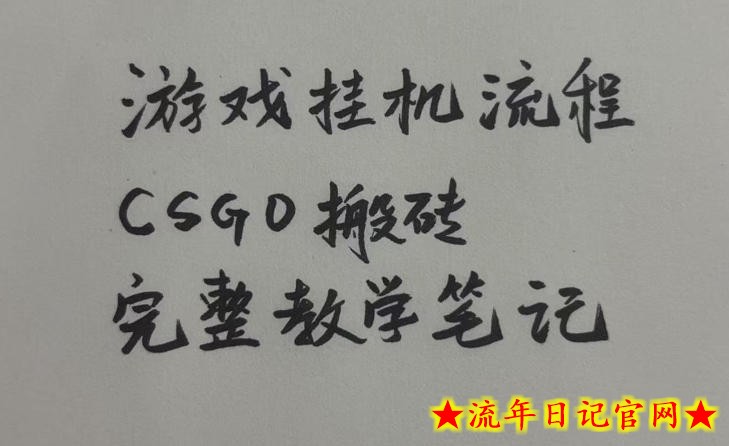 游戏挂机流程
CSGO搬砖
完整教学笔记
★流年日记官网★